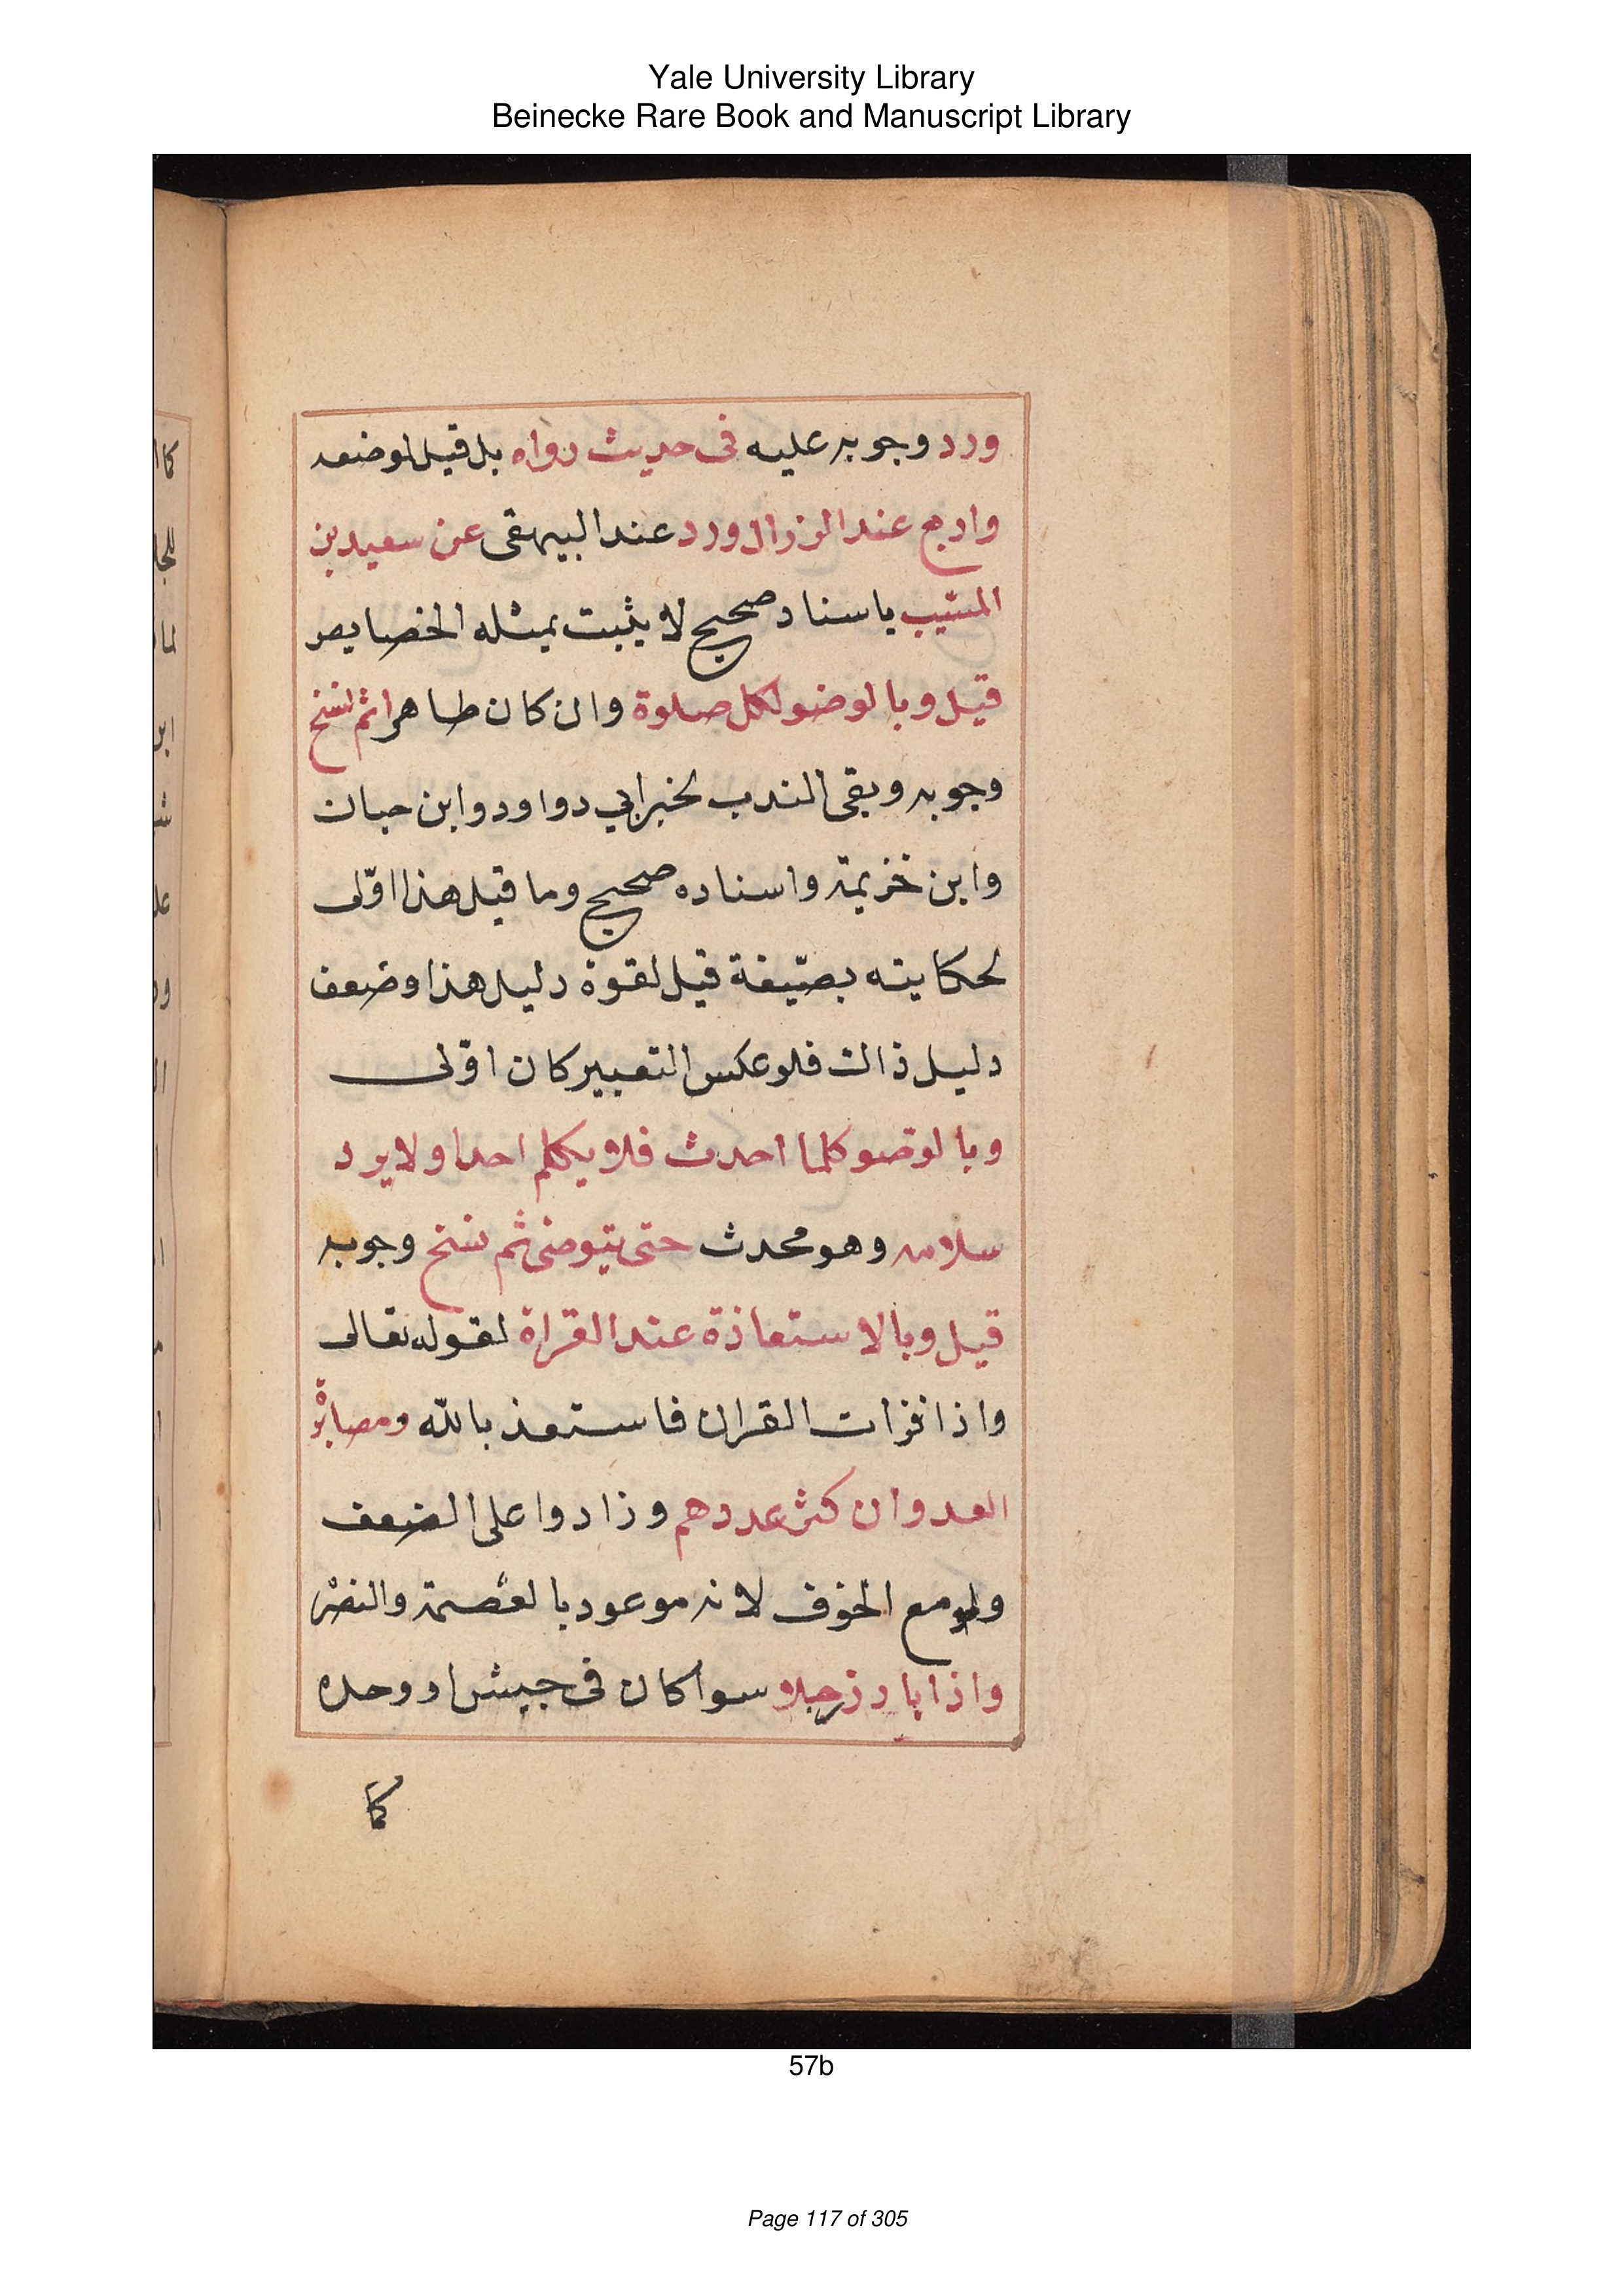 Yale University Library
Beinecke Rare Book and Manuscript Library
ورد وجوبه عليه فى حديث رواه بل قيل لوضعه
واربع عند الزوال ورد عند البيهقى عن سعيد بن
المسيب باسناد صحيح لا يثبت بمثله الخصايص
قيل وبالوضو لكل صلوة وان كان طاهرا ثم نسخ
وجوبه وبقى الندب لخبر ابي دواود وابن حبان
وابن خزيمة واسناده صحيح وما قبل هذا اوّلى
لحكايته بصيّغة قيل لقوة دليل هذا وضعف
دليل ذالك فلو عكس التعبير كان اوّلى
وبالوضو كلما احدث فلا يكلم احدا ولا يرد
سلامه وهو محدث حتى يتوضى ثم نسخ وجوبه
قيل وبالاستعاذة عند القراة لقوله تعالى
واذا قرات القران فاستعذ بالله ومصابرة
العدو ان كثر عددهم وزادوا على الضعف
ولو مع الخوف لانه موعود بالعصمة والنصر
واذا بارز رجلا سوا كان فى جيش او وحده
كا
57b
Page 117 of 305